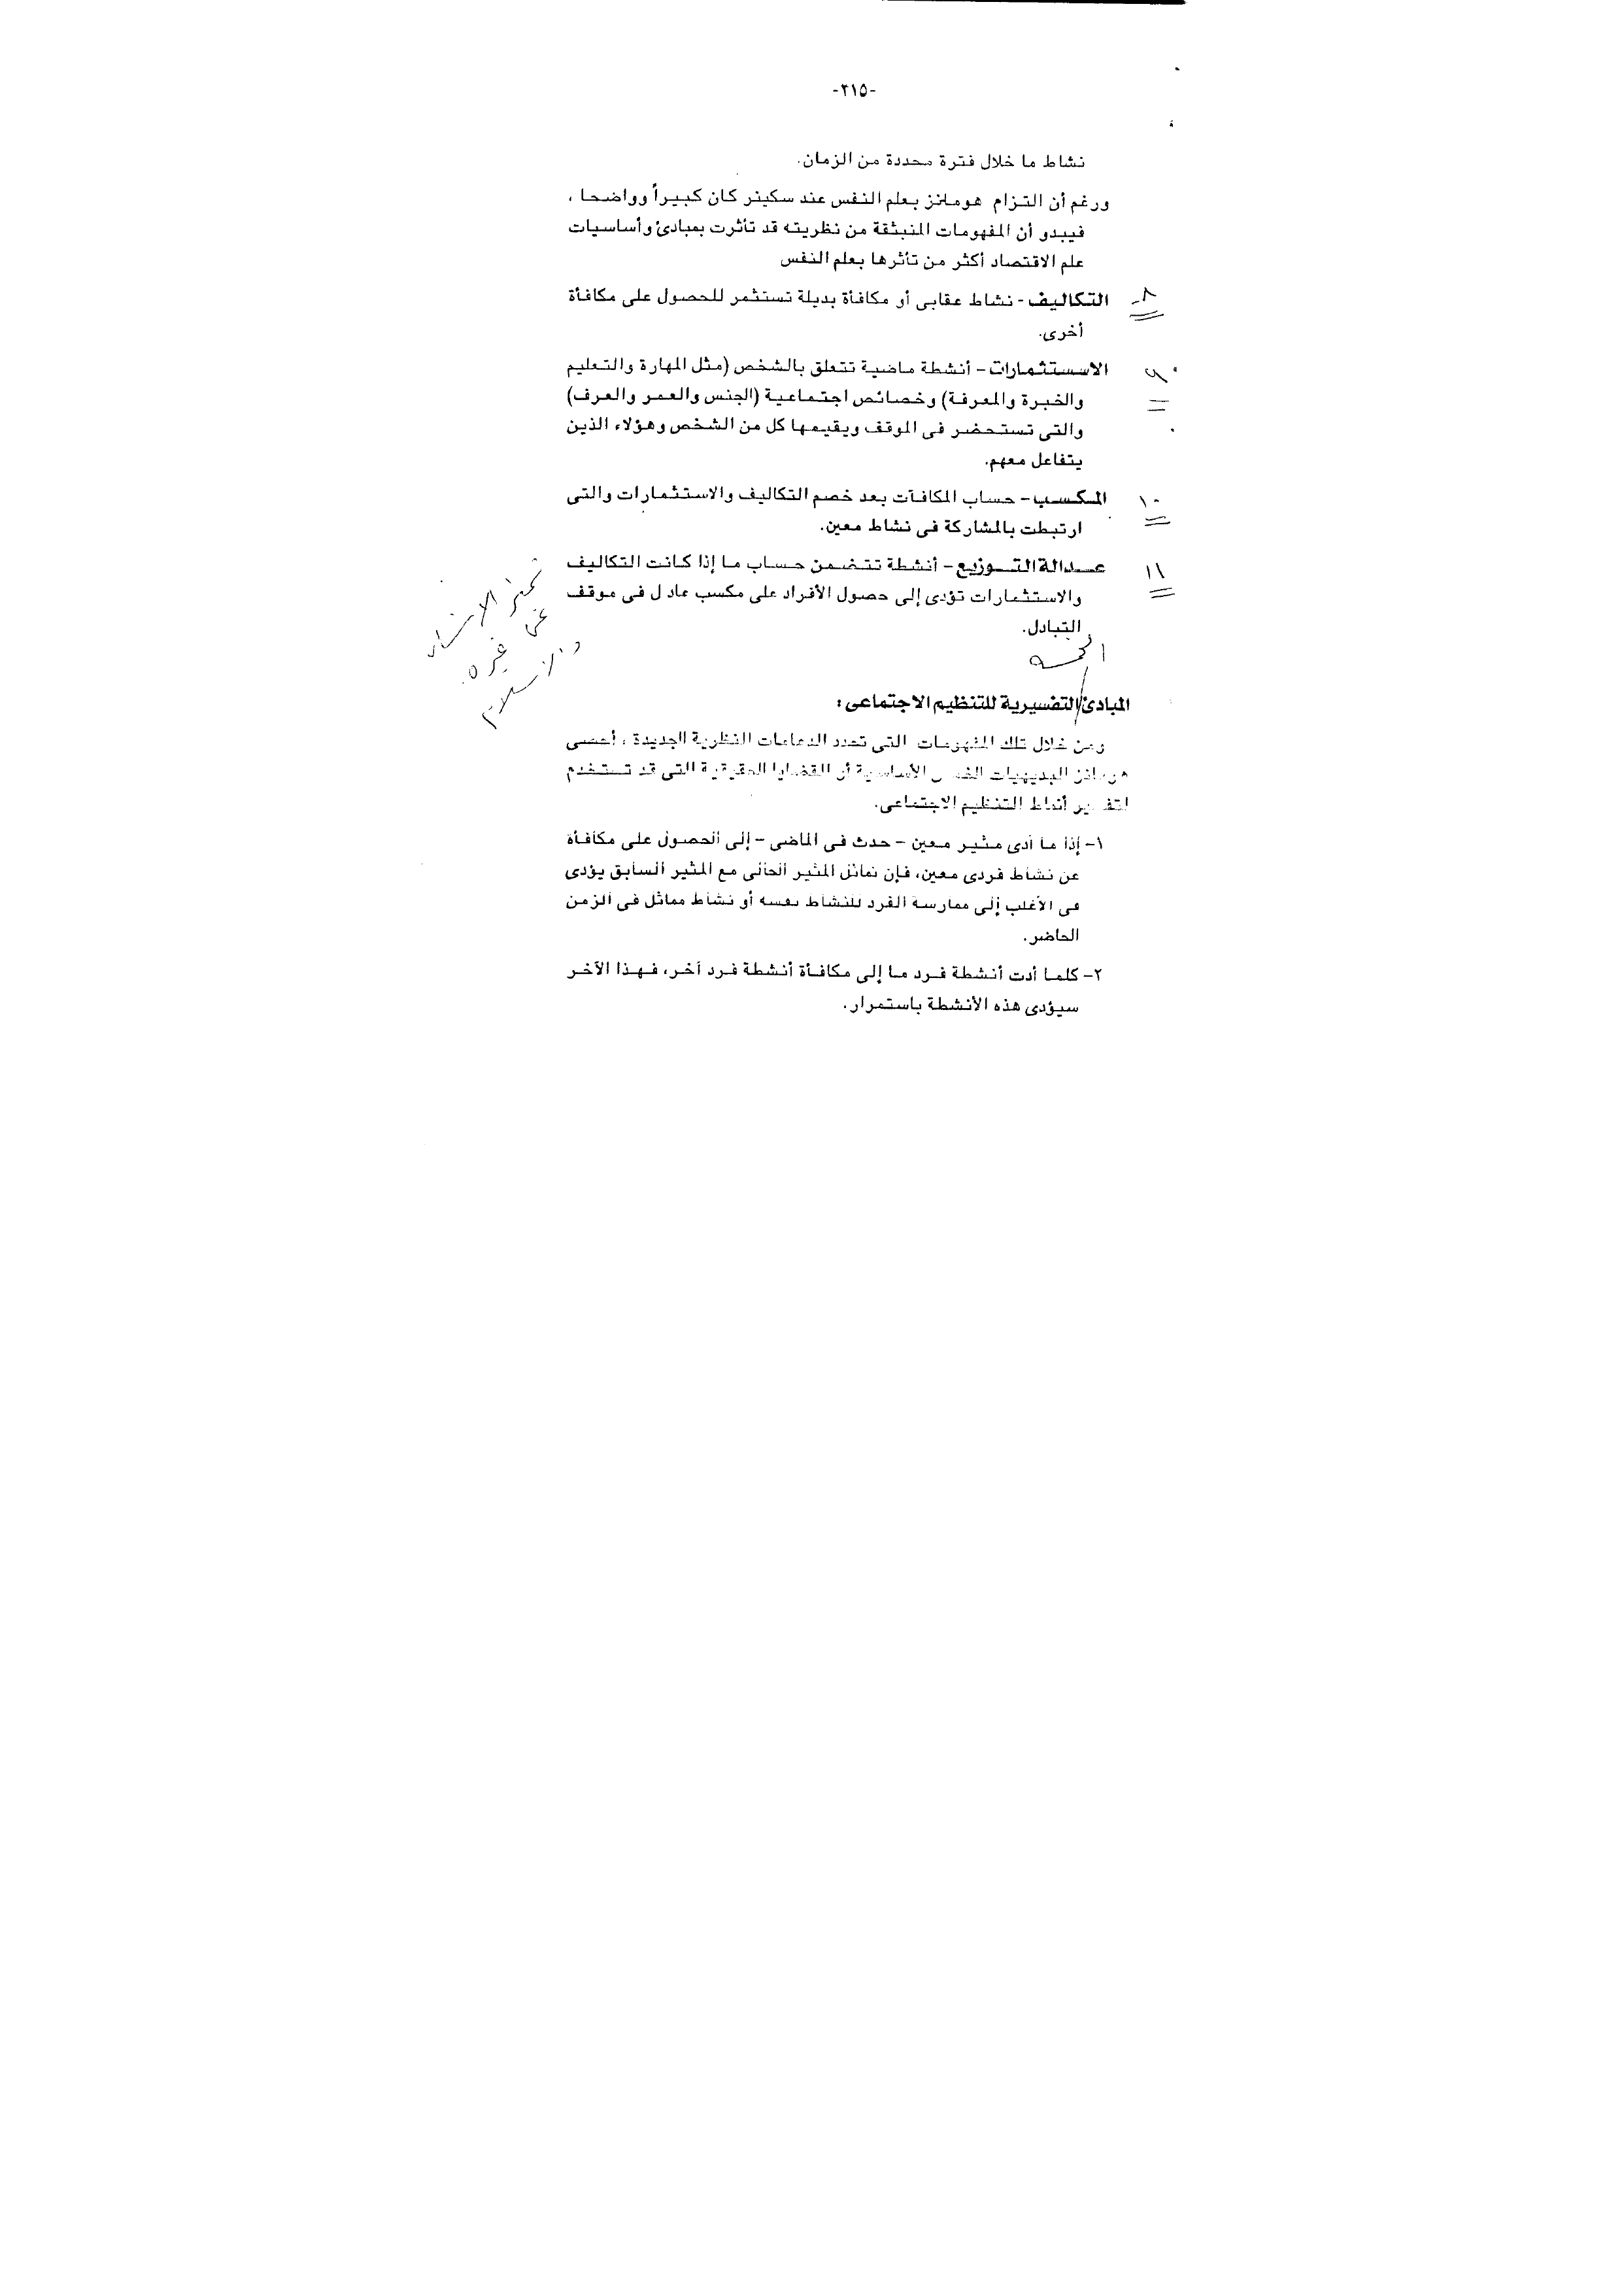 -٢١٥-
نشاط ما خلال فترة محددة من الزمان.
ورغم أن التزام هومانز بعلم النفس عند سكينر كان كبيراً وواضحا ،
فيبدو أن المفهومات المنبثقة من نظريته قد تأثرت بمبادئ وأساسيات
علم الاقتصاد أكثر من تأثرها بعلم النفس
٨- التكاليف - نشاط عقابى أو مكافأة بديلة تستثمر للحصول على مكافأة
أخرى.
٩ الاستثمارات - أنشطة ماضية تتعلق بالشخص (مثل المهارة والتعليم
والخبرة والمعرفة) وخصائص اجتماعية (الجنس والعمر والعرف)
والتى تستحضر فى الموقف ويقيمها كل من الشخص وهؤلاء الذين
يتفاعل معهم.
١٠ المكسب - حساب المكافآت بعد خصم التكاليف والاستثمارات والتى
ارتبطت بالمشاركة فى نشاط معين.
١١ عدالة التوزيع - أنشطة تتضمن حساب ما إذا كانت التكاليف
والاستثمارات تؤدى إلى حصول الأفراد على مكسب عادل فى موقف
التبادل.
عن غيره
المبادئ التفسيرية للتنظيم الاجتماعى :
ومن خلال تلك المفهومات التى تحدد الدعامات النظرية الجديدة ، أحصى
هومانز البديهيات الخمس الأساسية أو القضايا الحقيقية التى قد تستخدم
لتفسير أنماط التنظيم الاجتماعى.
١- إذا ما أدى مثير معين - حدث فى الماضى - إلى الحصول على مكافأة
عن نشاط فردى معين، فإن تماثل المثير الحالى مع المثير السابق يؤدى
فى الأغلب إلى ممارسة الفرد للنشاط نفسه أو نشاط مماثل فى الزمن
الحاضر.
٢- كلما أدت أنشطة فرد ما إلى مكافأة أنشطة فرد آخر، فهذا الآخر
سيؤدى هذه الأنشطة باستمرار.